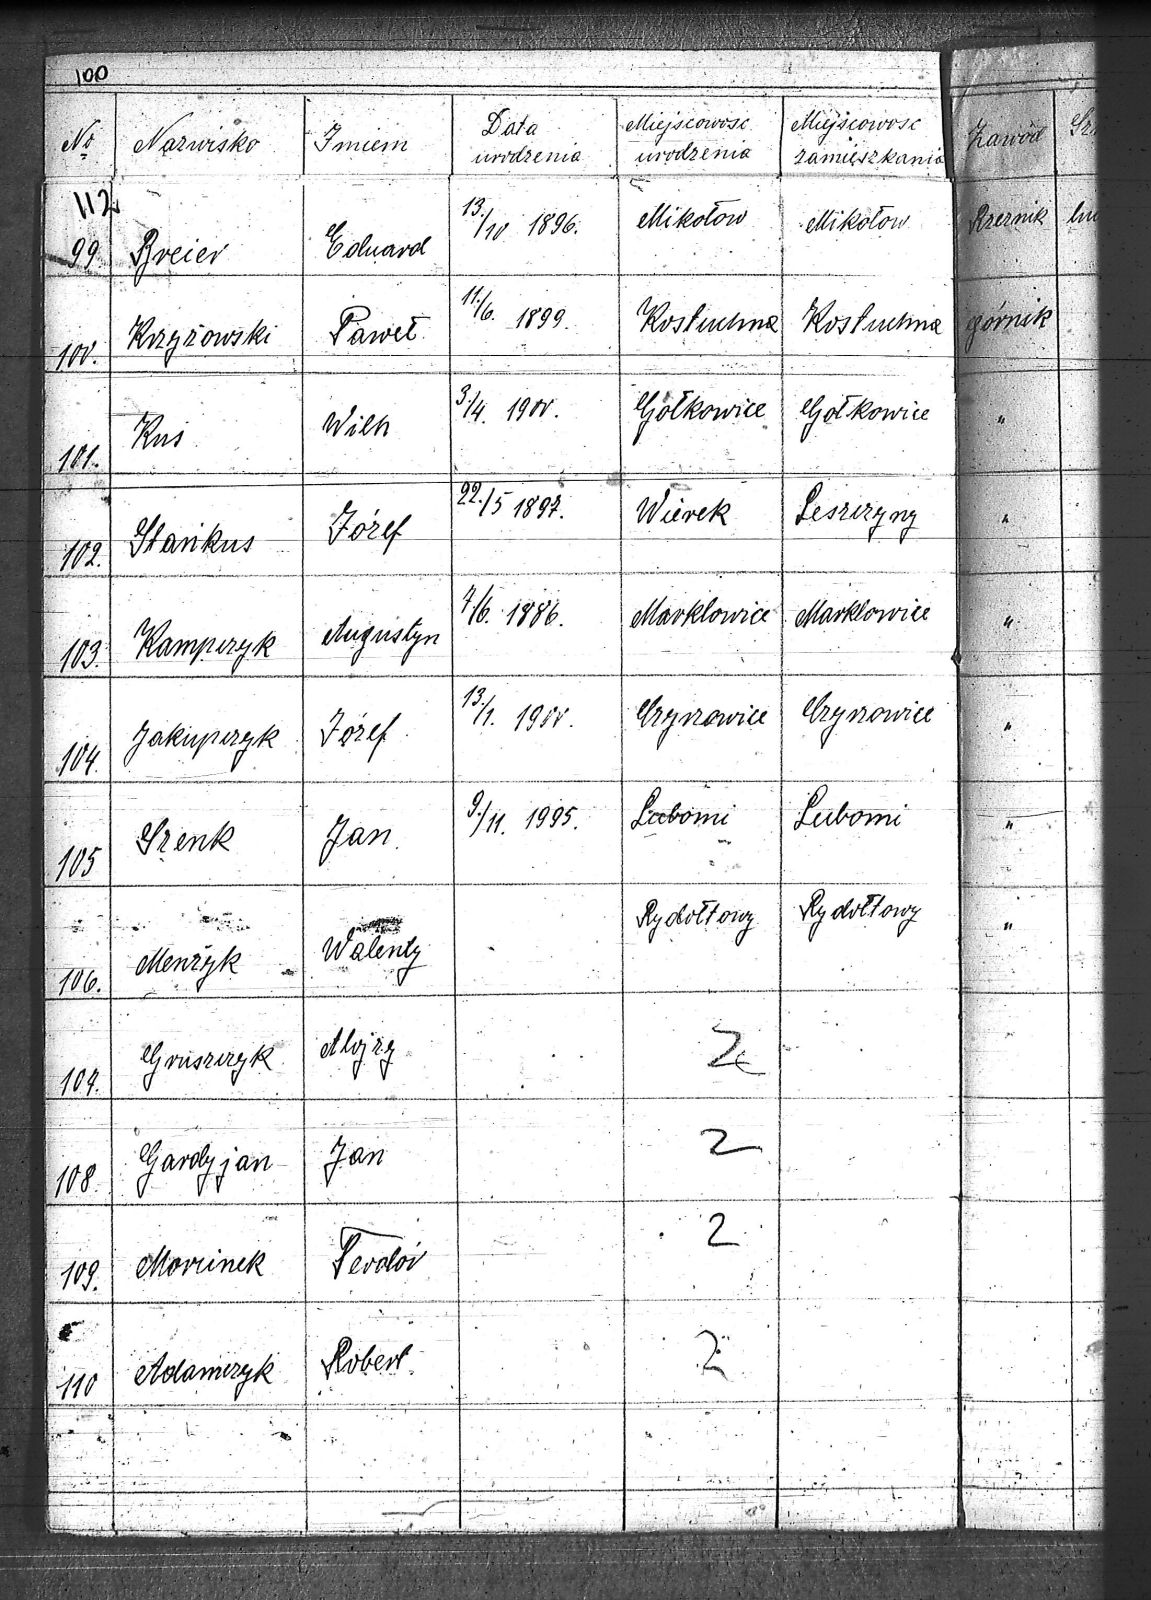 100
No Nazwisko Imiem Data urodzenia Miejscowosc urodzenia Miejscowosc zamieszkania Zawód
112
99 Breier Eduard 13./10 1896. Mikołow Mikołow Rzeznik
100. Krzyżowski Paweł 11./6. 1899. Kostuchna Kostuchna górnik
101. Kus Wilh 3./4. 1900. Gołkowice Gołkowice "
102. Stańkus Józef 22./5 1897. Wirek Leszczyny "
103. Kampczyk Augustyn 7./6. 1886. Marklowice Marklowice "
104. Jakupczyk Józef 13./1. 1900. Czyzowice Czyzowice "
105 Szenk Jan 9./11. 1995. Lubomi Lubomi "
106. Menżyk Walenty Rydołtowy Rydołtowy "
107. Gruszczyk Alojzy 2
108. Gardyjan Jan 2
109. Morcinek Teodor 2
110 Adamczyk Robert 2